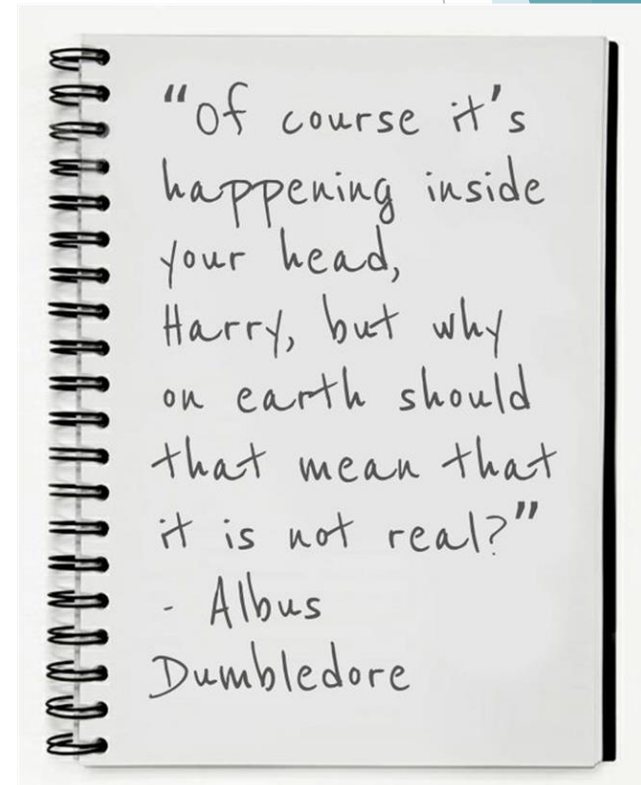 "Of course it's
happening inside
your head,
Harry, but why
on earth should
that mean that
it is not real?"
- Albus
Dumbledore